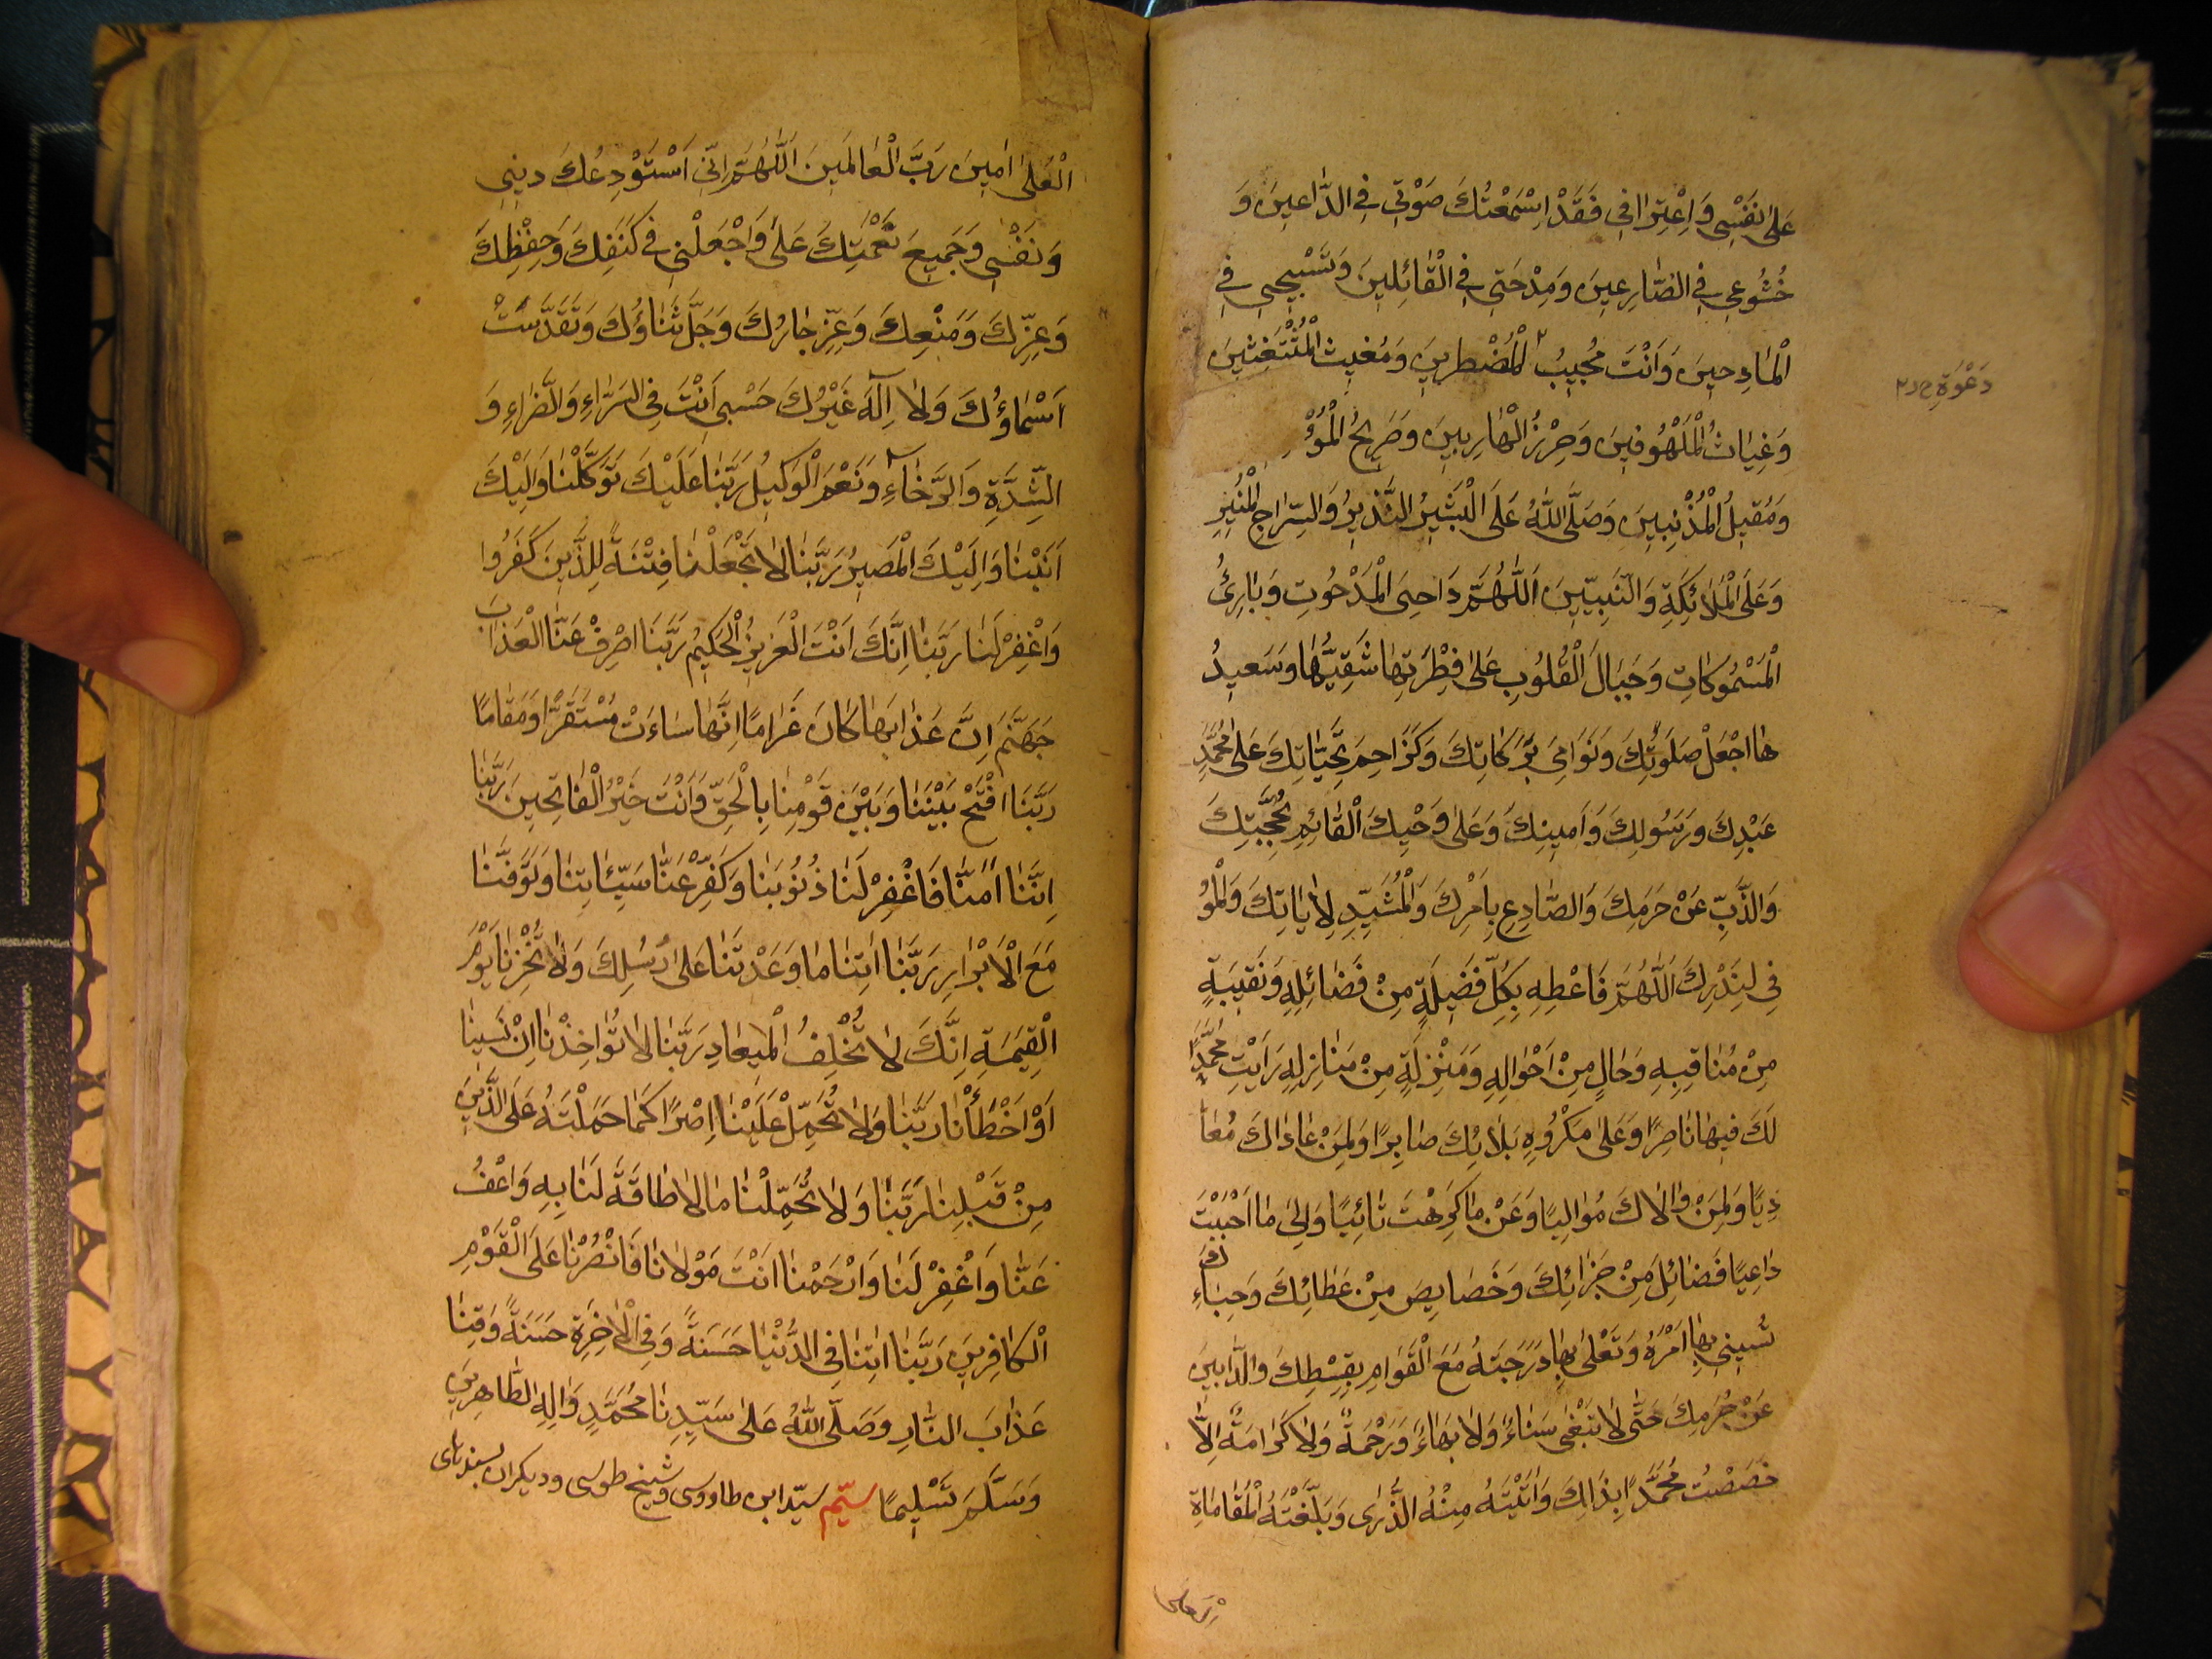 عَلىٰ نَفْسِي وَاِعْتِرَافِي فَقَدْ اِسْمَعْتُكَ صَوْتِي فِي الدَّاعِينَ وَ
خُشُوعِي فِي الضَّارِعِينَ وَمِدْحَتِي فِي الْقَائِلِينَ وَتَسْبِيحِي فِي
الْمَادِحِينَ وَاَنْتَ مُجِيبُ الْمُضْطَرِينَ وَمُغِيثُ
وَغِيَاثُ الْمَلْهُوفِينَ وَحِرْزُ الْهَارِبِينَ وَصَرِيخُ الْمُؤْ
وَمُقِيلُ الْمُذْنِبِينَ وَصَلَّى اللّٰهُ عَلَى الْبَشِيرِ النَّذِيرِ وَالسِّرَاجِ الْمُنِيرِ
وَعَلَى الْمَلَائِكَةِ وَالنَّبِيِّينَ اَللّٰهُمَّ دَاحِيَ الْمَدْحُوتِ وَبَارِئُ
الْمَسْمُوكَاتِ وَجَبَالَ الْقُلُوبِ عَلىٰ فِطْرَتِهَا شَقِيُّهَا وَسَعِيدُ
هَا اجْعَلْ صَلَوتِكَ وَنَوَامِيَ بَرَكَاتِكَ وَكَزَاحِمَ تَحِيَّاتِكَ عَلىٰ مُحَمَّدٍ
عَبْدِكَ وَرَسُولِكَ وَاَمِينِكَ وَعَلىٰ وَحْيِكَ الْقَائِمِ بِحُجَّتِكَ
وَالذَّبِّ عَنْ حَرَمِكَ وَالصَّادِعِ بِاَمْرِكَ وَالْمُشَيِّدِ لِاٰيَاتِكَ وَالْمُو
فِي لِنَذْرِكَ اَللّٰهُمَّ فَاَعْطِهِ بِكُلِّ فَضِيلَةٍ مِنْ فَضَائِلِهِ وَنَقِيبَةٍ
مِنْ مَنَاقِبِهِ وَحَالٍ مِنْ اَحْوَالِهِ وَمَنْزِلَةٍ مِنْ مَنَازِلِهِ رَاَيْتَ مُحَمَّدًا
لَكَ فِيهَا نَاصِرًا وَعَلىٰ مَكْرُوهِ بَلَائِكَ صَابِرًا وَلِمَنْ عَادَاكَ مُعَا
دِيًا وَلِمَنْ وَالَاكَ مُوَالِيًا وَعَنْ مَا كَرِهْتَ نَائِيًا وَلِىٰ مَا اَحْبَبْتَ
دَاعِيًا فَضَائِلَ مِنْ جَزَائِكَ وَخَصَايِصَ مِنْ عَطَائِكَ وَحِبَاءِ
تُسْنِي بِهَا اَمْرَهُ وَتَعْلِي بِهَا دَرَجَتَهُ مَعَ الْقَوَامِ بِقِسْطِكَ وَالذَّابِينَ
عَنْ حَرَمِكَ حَتّٰى لَا تَبْقٰى سَنَاءٌ وَلَا بَهَاءٌ وَرَحْمَةٌ وَلَا كَرَامَةٌ اِلَّا
خَصَصْتَ مُحَمَّدًا بِذَالِكَ وَاٰتَيْتَهُ مِنْهُ الذُّرٰى وَبَلَّغْتَهُ الْمَقَامَاةِ
الْعُلىٰ
الْعُلىٰ اٰمِينَ رَبَّ الْعَالَمِينَ اَللّٰهُمَّ اِنِّي اَسْتَوْدِعُكَ دِينِي
وَنَفْسِي وَجَمِيعَ نِعْمَتِكَ عَلَىَّ وَاجْعَلْنِي فِي كَنَفِكَ وَحِفْظِكَ
وَعِزِّكَ وَمَنْعِكَ وَعِزِّ جَارُكَ وَجَلَّ ثَنَاؤُكَ وَتَقَدَّسَتْ
اَسْمَاؤُكَ وَلَا اِلٰهَ غَيْرُكَ حَسْبِي اَنْتَ فِي السَّرَّاءِ وَالضَّرَاءِ وَ
الشِّدَّةِ وَالرَّخَاءِ وَنَعْمَ الْوَكِيلُ رَبَّنَا عَلَيْكَ تَوَكَّلْنَا وَاِلَيْكَ
اَنَبْنَا وَاِلَيْكَ الْمَصِيرُ رَبَّنَا لَا تَجْعَلْنَا فِتْنَةً لِلَّذِينَ كَفَرُوا
وَاغْفِرْ لَنَا رَبَّنَا اِنَّكَ اَنْتَ الْعَزِيزُ الْحَكِيمُ رَبَّنَا اصْرِفْ عَنَّا الْعَذَابَ
جَهَنَّمَ اِنَّ عَذَابَهَا كَانَ غَرَامًا اِنَّهَا سَاءَتْ مُسْتَقَرًّا وَمَقَامًا
رَبَّنَا افْتَحْ بَيْنَنَا وَبَيْنَ قَوْمِنَا بِالْحَقِّ وَاَنْتَ خَيْرُ الْفَاتِحِينَ رَبَّنَا
اِنَّنَا اٰمَنَّا فَاغْفِرْ لَنَا ذُنُوبَنَا وَكَفِّرْ عَنَّا سَيِّئَاتِنَا وَتَوَفَّنَا
مَعَ الْاَبْرَارِ رَبَّنَا اٰتِنَا مَا وَعَدْتَنَا عَلىٰ رُسُلِكَ وَلَا تُخْزِنَا يَوْمَ
الْقِيٰمَةِ اِنَّكَ لَا تُخْلِفُ الْمِيعَادِ رَبَّنَا لَا تُؤَاخِذْنَا اِنْ نَسِينَا
اَوْ اَخْطَأْنَا رَبَّنَا وَلَا تُحَمِّلْ عَلَيْنَا اِصْرًا كَمَا حَمَلْتَهُ عَلَى الَّذِينَ
مِنْ قَبْلِنَا رَبَّنَا وَلَا تُحَمِّلْنَا مَا لَا طَاقَةَ لَنَا بِهِ وَاعْفُ
عَنَّا وَاغْفِرْ لَنَا وَارْحَمْنَا اَنْتَ مَوْلَانَا فَانْصُرْنَا عَلَى الْقَوْمِ
الْكَافِرِينَ رَبَّنَا اٰتِنَا فِي الدُّنْيَا حَسَنَةً وَفِي الْاٰخِرَةِ حَسَنَةً وَقِنَا
عَذَابَ النَّارِ وَصَلَّى اللّٰهُ عَلىٰ سَيِّدِنَا مُحَمَّدٍ وَاٰلِهِ الطَّاهِرِينَ
وَسَلَّمَ تَسْلِيمًا سيّم سيّد ابن طاووسى وشيخ طوسى وديكران بسندهاى